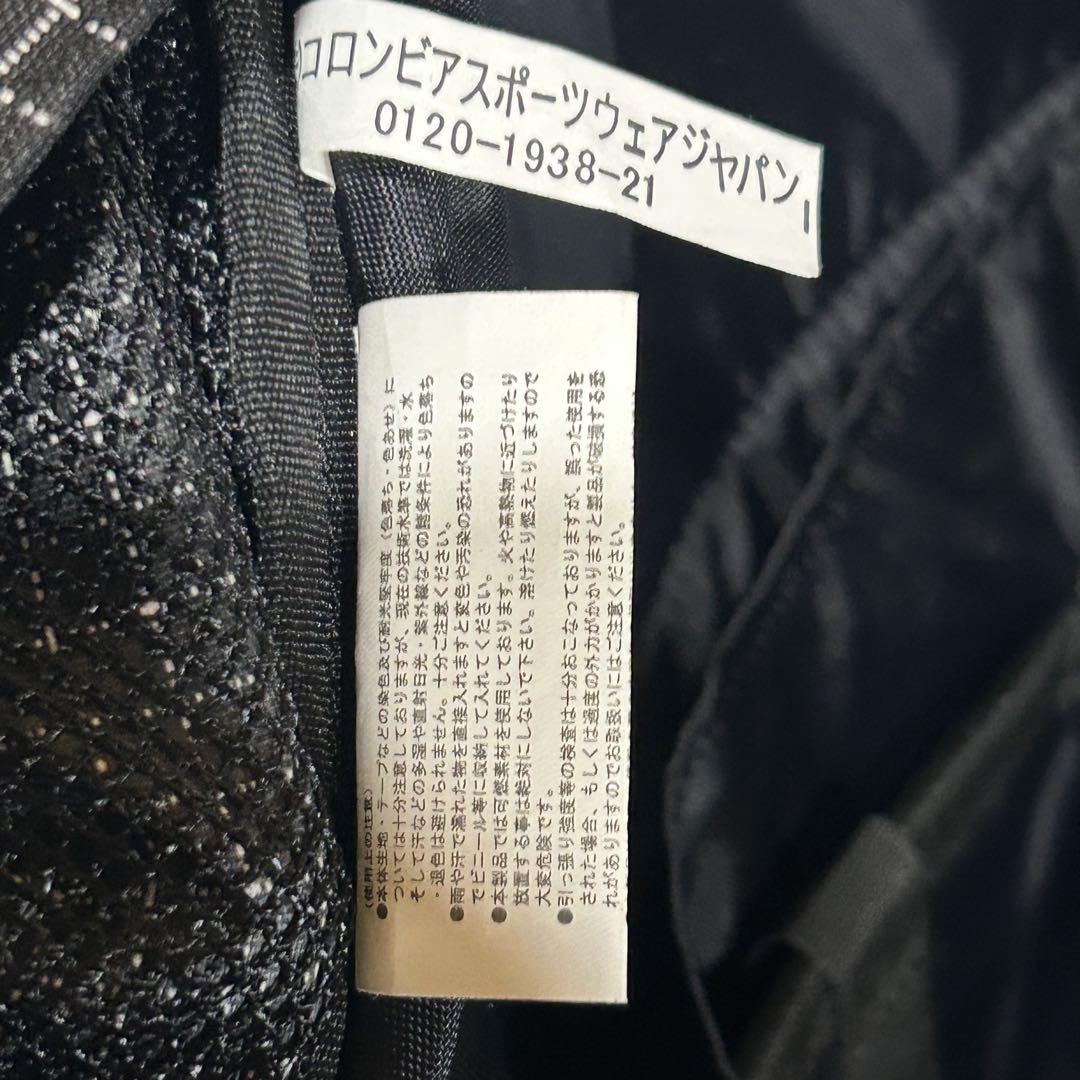 コロンビアスポーツウェアジャパン
0120-1938-21
(使用上の注意)
●本体生地・テープなどの染色及び耐光堅牢度（色落ち・色あせ）に
ついては十分注意しておりますが、現在の技術水準では洗濯・水
そして汗などの多湿や直射日光・紫外線などの諸条件により色落ち
・退色は避けられません。十分ご注意ください。
●雨や汗で濡れた物を直接入れますと変色や汚染の恐れがありますの
でビニール等に収納して入れてください。
●本製品では可燃素材を使用しております。火や高熱物に近づけたり
放置する事は絶対にしないで下さい。溶けたり燃えたりしますので
大変危険です。
●引っ張り強度等の検査は十分おこなっておりますが、誤った使用を
された場合、もしくは過度の外力がかかりますと製品が破損する恐
れがありますのでお取扱いにはご注意ください。